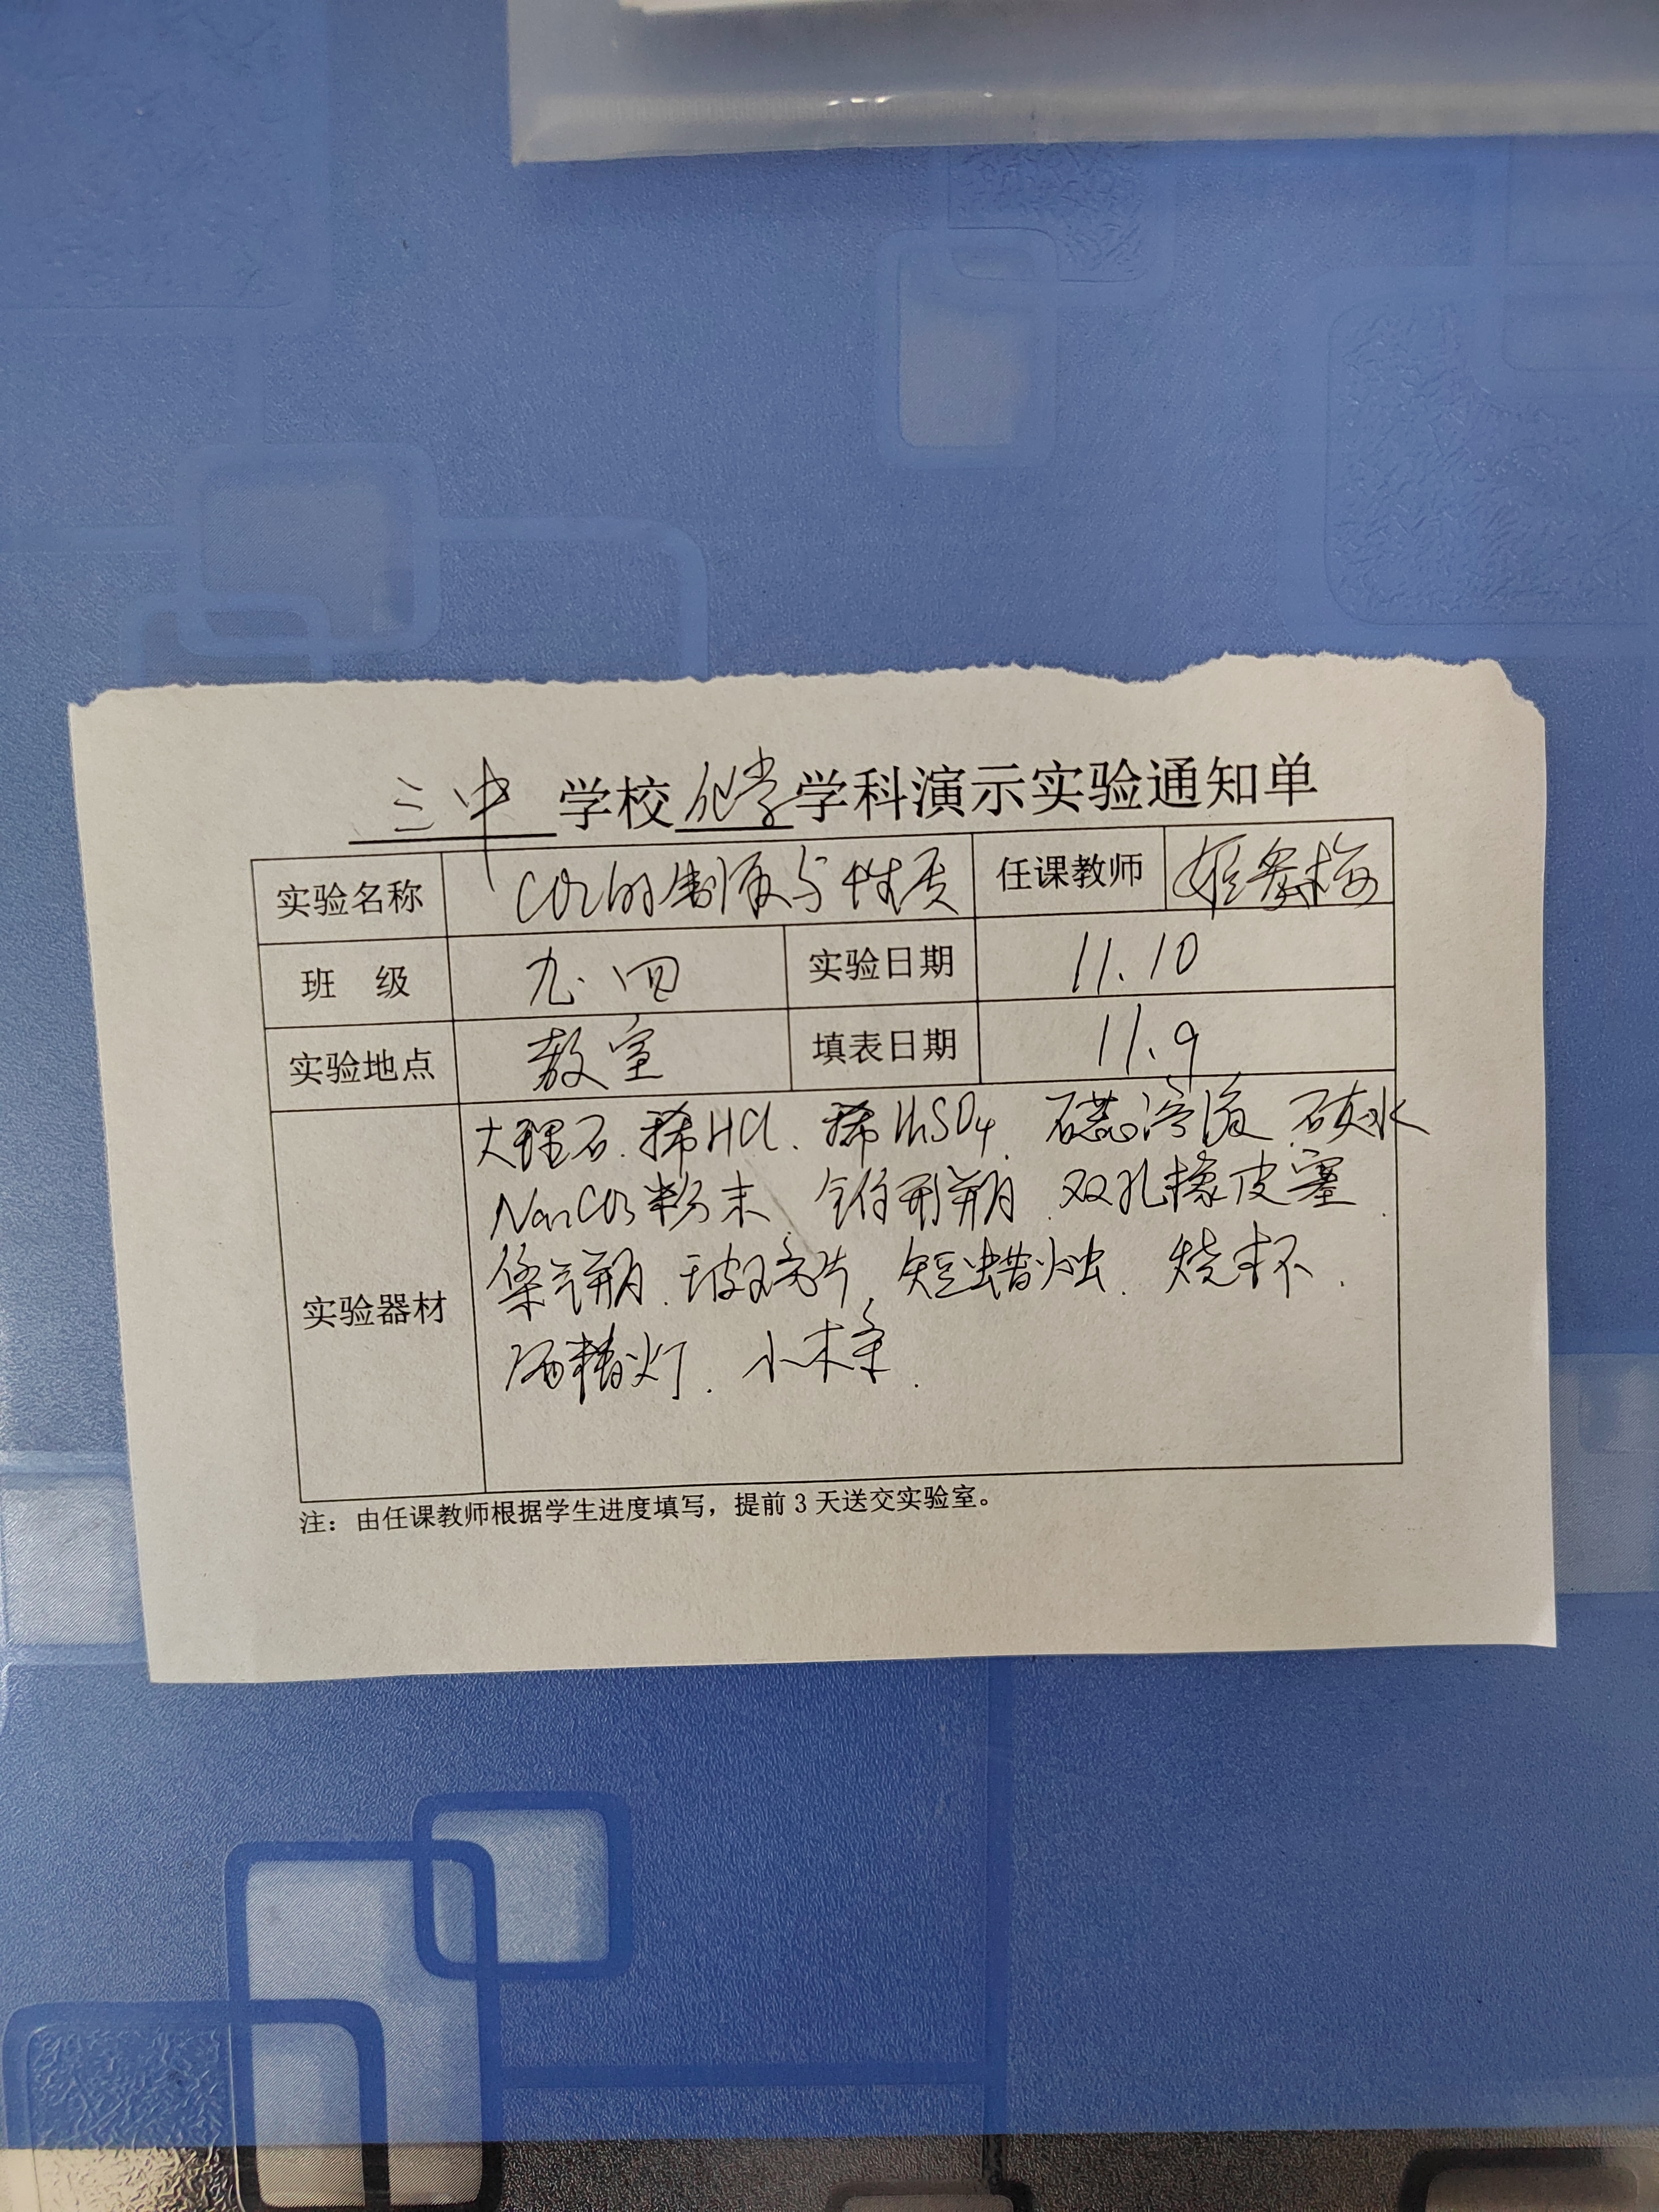 三中学校化学学科演示实验通知单
实验名称 CO2的制取与性质 任课教师
班 级 九.四 实验日期 11.10
实验地点 教室 填表日期 11.9
实验器材
大理石.稀HCl、稀H2SO4、石蕊溶液.石灰水
Na2CO3粉末、锥形瓶.双孔橡皮塞.
集气瓶.玻璃片.短蜡烛.烧杯.
酒精灯.小木条.
注：由任课教师根据学生进度填写，提前3天送交实验室。